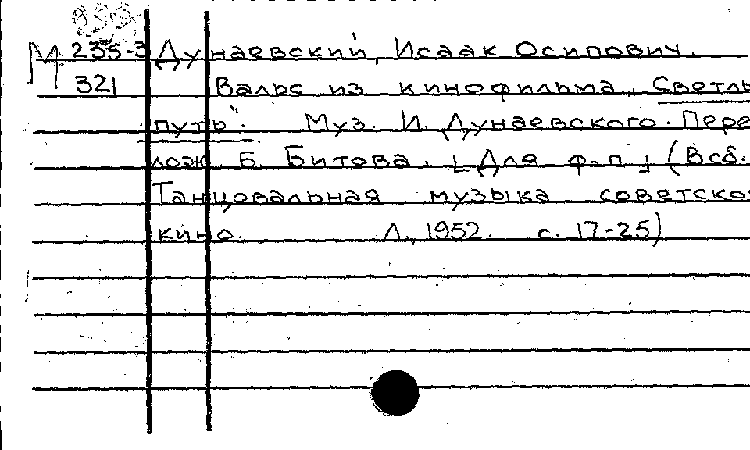 М 235-3 Дунаевский, Исаак Осипович.
321 Вальс из кинофильма „Светлы
путь". Муз. И. Дунаевского. Пере
лож. Б. Битова. [Для ф.-п.] (В сб.
Танцовальная музыка советско
кино. Л., 1952. с. 17-25)